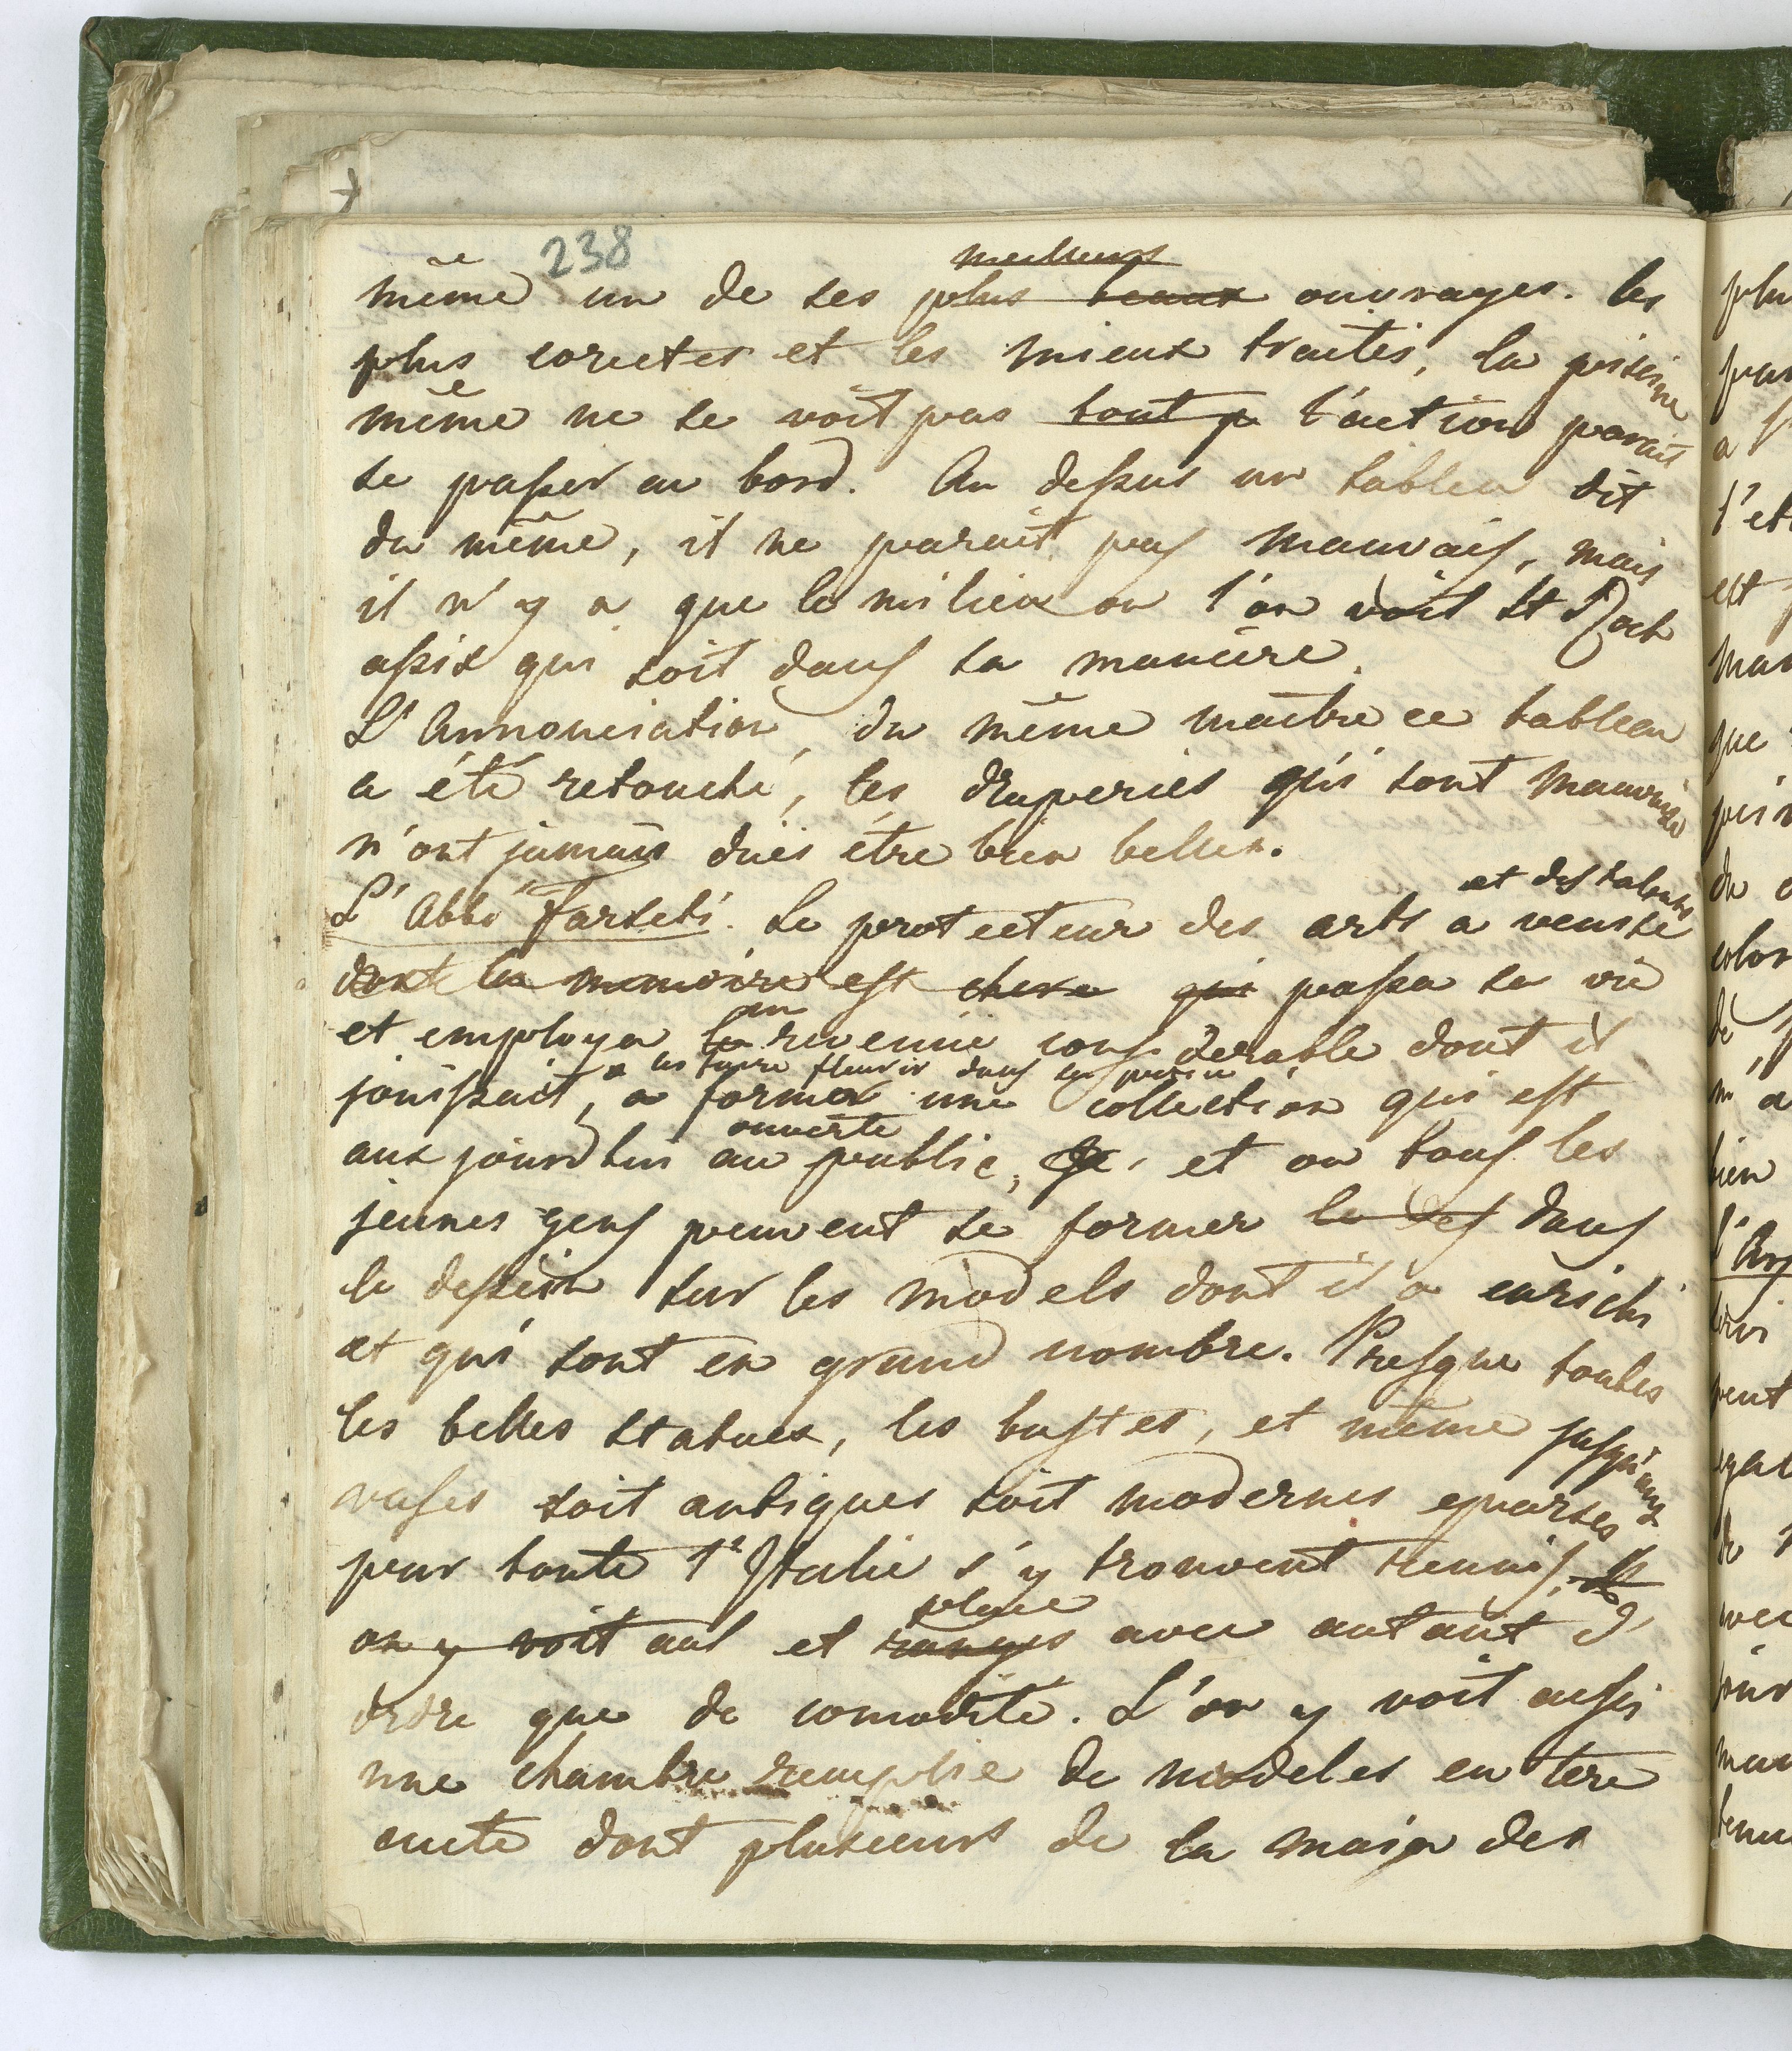 238
meilleurs
même un de ses plus beaux ouvrages. les
plus corectes et les mieux traités, la piscine
même ne se voit pas tout p l'action parait
se passer au bord. Au dessus un tableau dit
du même, il ne parait pas mauvais, mais
il n'y a que le milieu ou l'on voit St Roch
assis qui soit dans sa maniere.
L'Annonciation, du même maître ce tableau
a été retouché, les draperies qui sont mauvaises
n'ont jamais dües être bien belles.
et des talents
L'Abbé Farseti. Le protecteur des arts a venise
dont la memoire est chere qui passa sa vie
un
et employa le revenüe considerable dont il
a les faire fleurir dans sa patrie
jouissait, a forma une collection qui est
ouverte
aux jourdhui au public, et ou tous les
jeunes gens peuvent se former le des dans
le dessein sur les models dont il a enrichi
et qui sont en grand nombre. Presque toutes
les belles statues, les bustes, et même jusqu'aux
vases soit antiques soit modernes eparses
par toute l'Italie s'y trouvent reunis,
place
on y voit aut et rangés avec autant d'
ordre que de comodité. L'on y voit aussi
une chambre remplie de modeles en tere
cuite dont plusieurs de la main des